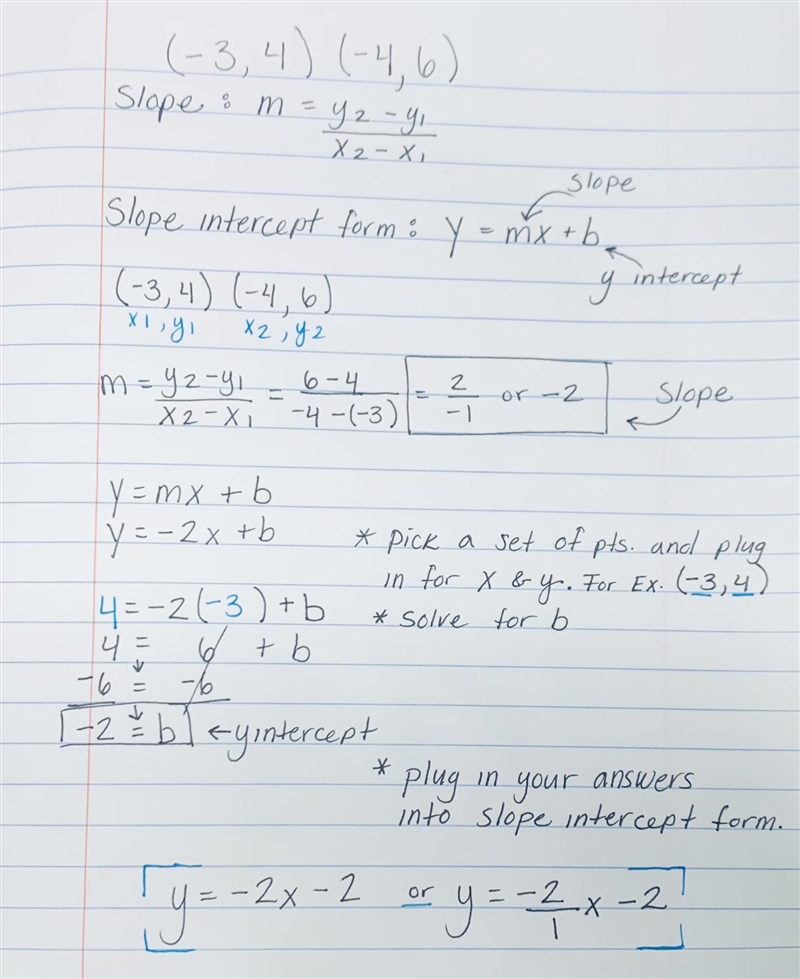 (-3, 4) (-4, 6)
Slope : m = y2 - y1 / x2 - x1
slope
Slope intercept form : y = mx + b
y intercept
(-3, 4) (-4, 6)
x1, y1 x2, y2
m = y2 - y1 / x2 - x1 = 6 - 4 / -4 - (-3) = 2 / -1 or -2 Slope
y = mx + b
y = -2x + b * pick a set of pts. and plug
in for x & y. For Ex. (-3, 4)
4 = -2(-3) + b * solve for b
4 = 6 + b
-6 = -6
-2 = b ← y intercept
* plug in your answers
into slope intercept form.
y = -2x - 2 or y = -2/1 x - 2